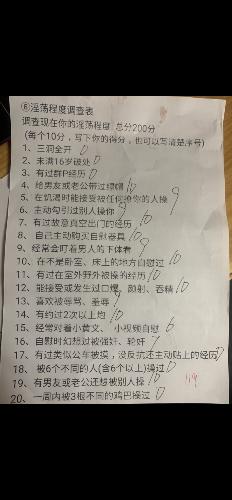 ⑧淫荡程度调查表
调查现在你的淫荡程度 总分200分
(每个10分，写下你的得分，也可以写清楚序号)
1、三洞全开 0
2、未满16岁破处 0
3、有过群P经历 0
4、给男友或老公带过绿帽 10
5、在饥渴时能接受被任何撩你的人操 9
6、主动勾引过别人操你 9
7、有过故意真空出门的经历 10
8、自己主动购买自慰器具 10
9、经常会盯着男人的下体看 9
10、在不是卧室、床上的地方自慰过 10
11、有过在室外野外被操的经历 10
12、能接受或发生过口爆、颜射、吞精 10
13、喜欢被辱骂、羞辱 9
14、有约过2次以上炮 10
15、经常对着小黄文、小视频自慰 6
16、自慰时幻想过被强奸、轮奸 7
17、有过类似公车被摸，没反抗还主动贴上的经历
18、被6个不同的人(含6个以上)操过 0
19、有男友或老公还想被别人操 10
20、一周内被3根不同的鸡巴操过 0